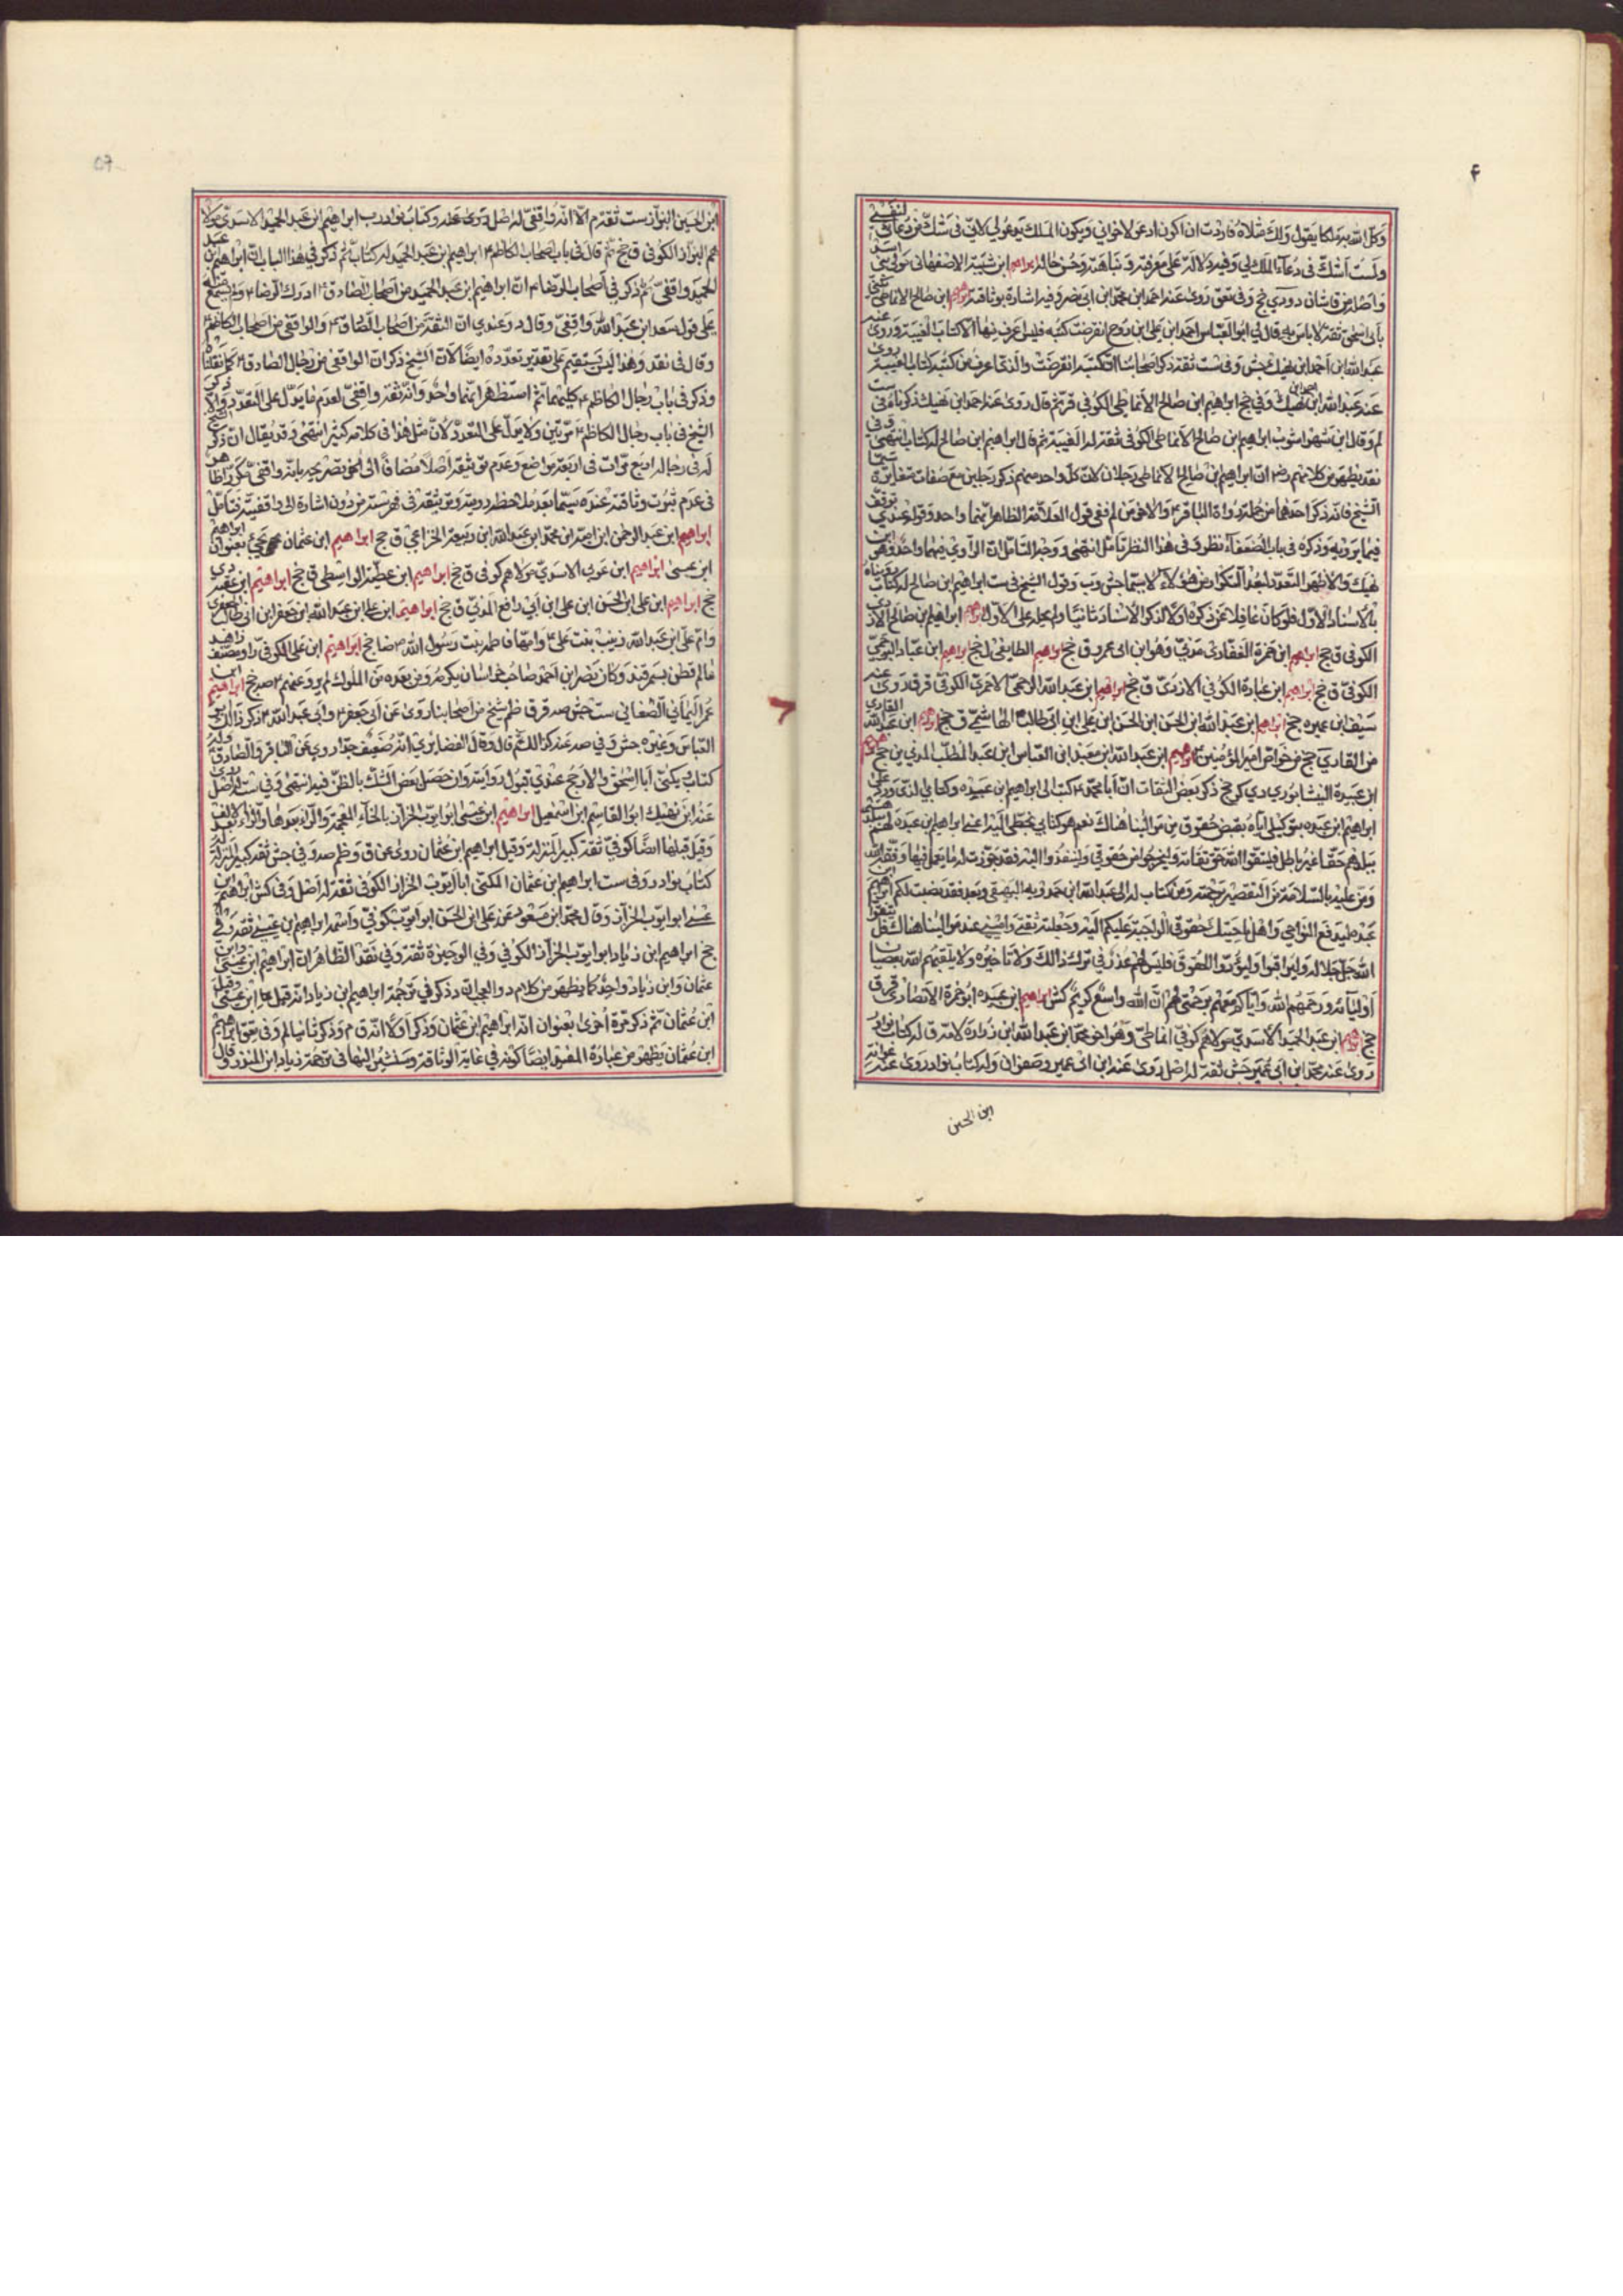 ۴
وكل الله به ملكا يقول ولك مثلاه فاردت ان اكون ادعو لاخواني ويكون الملك يدعو لي لاني في شك من دعائي لنفسي
ولست اشك في دعاء الملك لي وفيه دلالة على معرفته ونباهته وحسن حاله ابراهيم ابن شيبة الاصفهاني مولى بني اسد
واصله من قاشان دي جخ وفي تعق روى عنه احمد ابن محمد ابن ابي نصر وفيه اشارة بوثاقته ابراهيم ابن صالح الانماطي
بابي اسحق ثقة لا باس به قال لي ابو العباس احمد ابن علي ابن نوح انقرضت كتبه فليس اعرف منها الا كتاب الغيبة وروى عنه
عبد الله ابن احمد ابن نهيك جش وفي ست ثقة ذكر اصحابنا ان كتبه انقرضت والذي اعرف من كتبه كتاب الغيبة روى
عنه عبد الله ابن نهيك وفي جخ ابراهيم ابن صالح الانماطي الكوفي قر ثم قال روى عنه احمد ابن نهيك ذكرناه في ست
لم وقال ابن شهراشوب ابراهيم ابن صالح الانماطي الكوفي ثقة له الغيبة ثم قال ابراهيم ابن صالح له كتاب انتهى وفي
نقد يظهر من كلامهم رض ان ابراهيم بن صالح الانماطي رجلان لان كل واحد منهم ذكر رجلين مع صفات متغايرة سيما
الشيخ فانه ذكر احدهما من جملة رواة الباقر والاخر من لم ففي قول العلامة الظاهر انهما واحد وقوله عندي توقف
فيما يرويه وذكره في باب الضعفاء نظر وفي هذا النظر تامل انتهى ووجه التامل ان الراوي فيهما واحد وهو ابن
نهيك والاظهر التعدد لبعد التكرار من هؤلاء لا سيما جش وب وقول الشيخ في ست ابراهيم ابن صالح له كتاب رويناه
بالاسناد الاول فلو كان غافلا عن ذكره اولا لذكر الاسناد ثانيا ولم يحله على الاول ابراهيم ابن صالح الازدي
الكوفي ق جخ ابراهيم ابن ضمرة الغفاري مدني وهو ابن ابي عمرو ق جخ ابراهيم الطايفي ل جخ ابراهيم ابن عباد البرجمي
الكوفي ق جخ ابراهيم ابن عبادة الكوفي الازدي ق جخ ابراهيم ابن عبد الله الاحمري الكوفي قر ق روى عنه
سيف ابن عميره جخ ابراهيم ابن عبد الله ابن الحسن ابن الحسن ابن علي ابن ابي طالب الهاشمي ق جخ ابراهيم ابن عبد الله القاري
من القارة جخ من خواص امير المؤمنين ابراهيم ابن عبد الله ابن معبد ابن العباس ابن عبد المطلب المدني ين جخ ابراهيم
ابن عبده النيشابوري دي كر جخ ذكر بعض الثقات ان ابا محمد كتب الى ابراهيم ابن عبده وكتابي الذي ورد على
ابراهيم ابن عبده بتوكيلي اياه بقبض حقوقي من موالينا هناك نعم هو كتابي بخطي اليه اعني ابراهيم ابن عبده لهم
ببلدهم حقا غير باطل فليتقوا الله حق تقاته وليخرجوا من حقوقي وليدفعوها اليه فقد جوزت له ما يعمل فيها وفقه الله
ومن عليه بالسلامة من التقصير برحمته ومن كتاب له الى عبد الله ابن حمدويه البيهقي وبعد فقد نصبت لكم ابراهيم ابن
عبده ليدفع النواحي واهل ناحيتك حقوقي الواجبة عليكم اليه وجعلته ثقتي واميني عند موالينا هناك فليتقوا
الله جل جلاله وليراقبوا وليؤدوا الحقوق فليس لهم عذر في ترك ذالك ولا تاخيره ولا يشقيهم الله بعصيان
اوليائه ورحمهم الله واياك معهم برحمتي لهم ان الله واسع كريم كش ابراهيم ابن عبيده ابو غرة الانصاري قر ق
جخ ابراهيم ابن عبد الحميد الاسدي مولاهم كوفي انماطي وهو اخو محمد ابن عبد الله ابن زراره لامه ق له كتاب نوادر
روى عنه محمد ابن ابي عمير جش ثقة له اصل روى عنه ابن ابي عمير وصفوان وله كتاب نوادر روى عنه عوانة
ابن الحسين
ابن الحسين البزاز ست ثقة م الا انه واقفي له اصل روى عنه وكتاب نوادر ب ابراهيم ابن عبد الحميد الاسدي مولا
هم البزاز الكوفي ق جخ ثم قال في باب اصحاب الكاظم ابراهيم بن عبد الحميد له كتاب ثم ذكر في هذا الباب ان ابراهيم بن عبد
الحميد واقفي ثم ذكر في اصحاب الرضا ان ابراهيم ابن عبد الحميد من اصحاب الصادق ادرك الرضا ولم يسمع منه
على قول سعد ابن عبد الله واقفي وقال د وعندي ان الثقة من اصحاب الصادق والواقفي من اصحاب الكاظم
وقال في نقد وهذا ليس بمستقيم على تقدير تعدده ايضا لان الشيخ ذكر ان الواقفي من رجال الصادق كما نقلنا
وذكر في باب رجال الكاظم كليهما ثم استظهر انهما واحد وانه ثقة واقفي لعدم ما يدل على التعدد والا ذكر
الشيخ في باب رجال الكاظم مرتين ولا يدل على التعدد لان مثل هذا في كلامه كثير انتهى وقد يقال ان ذكر الشيخ
له في رجاله اربع مرات في اربعة مواضع وعدم توثيقه اصلا مضافا الى تصريحه بانه واقفي مكررا ظاهر
في عدم ثبوت وثاقته عنده سيما بعد ملاحظة رويته وتوثيقه في فهرسته من دون اشارة الى واقفيته فتامل
ابراهيم ابن عبد الرحمن ابن امية ابن محمد ابن عبد الله ابن ربيعة الخزاعي ق جخ ابراهيم ابن عثمان يجيء بعنوان ابراهيم
ابن عيسى ابراهيم ابن عربي الاسدي مولاهم كوفي ق جخ ابراهيم ابن عطية الواسطي ق جخ ابراهيم ابن عقبه دي
جخ ابراهيم ابن علي ابن الحسن ابن علي ابن ابي رافع المدني ق جخ ابراهيم ابن علي ابن عبد الله ابن جعفر ابن ابي طالب الجعفري
وام علي ابن عبد الله زينب بنت علي وامها فاطمة بنت رسول الله ضا جخ ابراهيم ابن علي الكوفي راو مصنف زاهد
عالم قطن بسمرقند وكان نصر ابن احمد صاحب خراسان يكرمه ومن بعده من الملوك لم يرو عنهم صه جخ ابراهيم ابن
عمر اليماني الصنعاني ست جش صه قر ق ظم شيخ من اصحابنا روى عن ابي جعفر وابي عبد الله ذكر ذالك ابو
العباس وغيره جش وفي صه عنه كذالك ثم قال وقال ابن الغضايري انه ضعيف جدا روى عن الباقر والصادق وله
كتاب ويكنى ابا اسحق والارجح عندي قبول روايته وان حصل بعض الشك بالطعن فيه انتهى وفي ست له اصل روى
عنه ابن نهيك ابو القاسم ابن اسمعيل ابراهيم ابن عيسى ابو ايوب الخزاز بالخاء المعجمة والراء بعدها والزاء بعد الالف
وقيل قبلها ايضا كوفي ثقة كبير المنزلة وقيل ابراهيم ابن عثمان روى عن ق وظم صه وفي جش ثقة كبير المنزلة له
كتاب نوادر وفي ست ابراهيم ابن عثمان المكنى ابا ايوب الخزاز الكوفي ثقة له اصل وفي كش ابراهيم ابن
عيسى ابو ايوب الخزاز وقال محمد ابن مسعود عن علي ابن الحسن ابو ايوب كوفي واسمه ابراهيم بن عيسى ثقة وفي
جخ ابراهيم ابن زياد ابو ايوب الخزاز الكوفي وفي الوجيزة ثقة وفي نقد الظاهر ان ابراهيم ابن عيسى وابن
عثمان وابن زياد واحد كما يظهر من كلام د والعجب انه ذكر في ترجمة ابراهيم ابن زياد انه قيل ابن عيسى وقيل
ابن عثمان ثم ذكر مرة اخرى بعنوان انه ابراهيم ابن عثمان وذكر اولا انه ق م وذكر ثانيا لم وفي تعق ابراهيم
ابن عثمان يظهر من عبارة المفيد ايضا كونه في غاية الوثاقة وسنشير اليها في ترجمة زياد ابن المنذر وقال